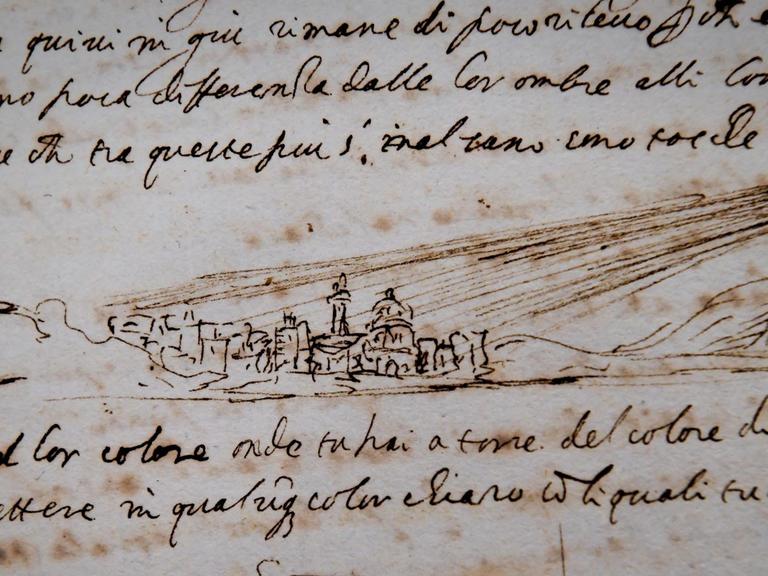 quivi in giu rimane di poco rilevo
poca differentia dalle lor ombre alli
tra queste piu s'inalzano sono tocche
lor colore onde tu hai a torre del colore di
ettere in qualuq color chiaro cō li quali tu